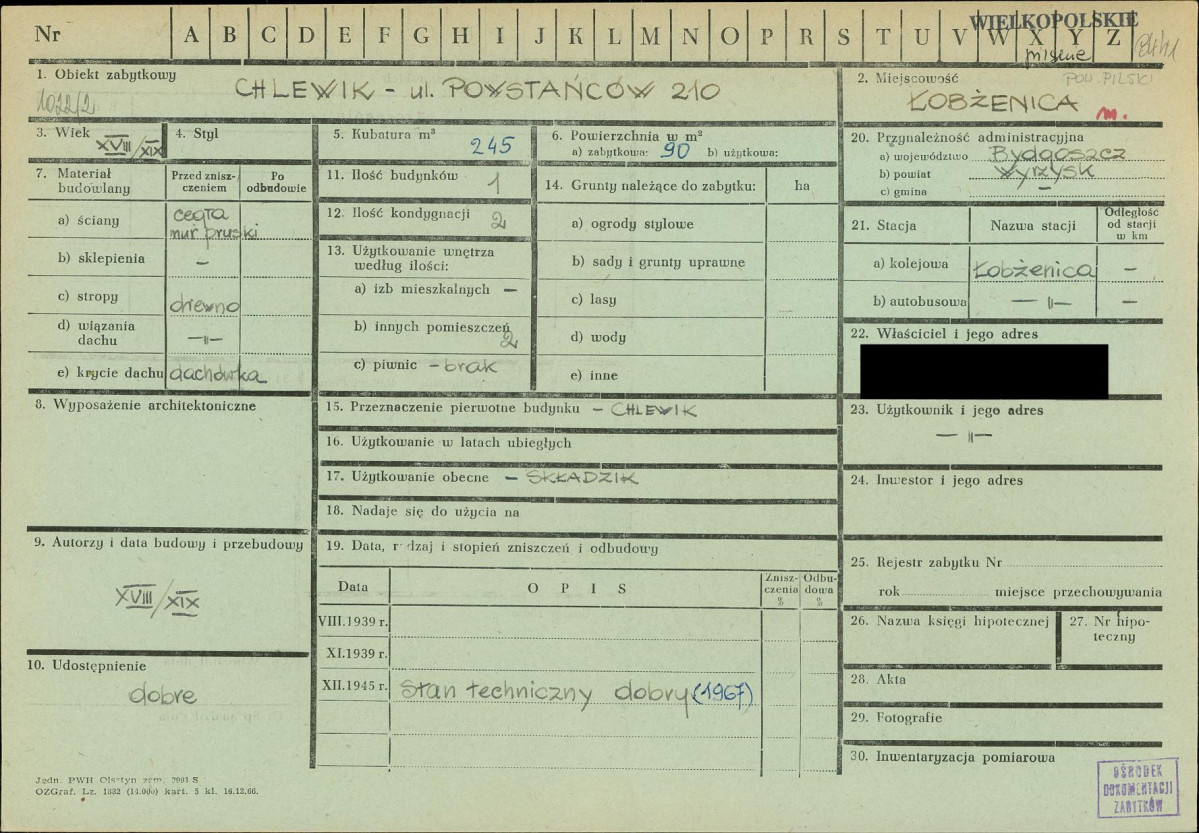 Nr A B C D E F G H I J K L M N O P R S T U V W X Y Z
WIELKOPOLSKIE
miejskie
1. Obiekt zabytkowy
CHLEWIK - ul. POWSTAŃCÓW 210
1022/2
2. Miejscowość
POW. PILSKI
ŁOBŻENICA
m.
3. Wiek
XVIII/XIX
4. Styl
5. Kubatura m³
245
6. Powierzchnia w m²
a) zabytkowa: 90 b) użytkowa:
20. Przynależność administracyjna
a) województwo Bydgoszcz
b) powiat Wyrzysk
c) gmina —
7. Materiał budowlany
Przed zniszczeniem
Po odbudowie
a) ściany cegła
mur pruski
b) sklepienia —
c) stropy drewno
d) wiązania dachu —"—
e) krycie dachu dachówka
11. Ilość budynków 1
12. Ilość kondygnacji 2
13. Użytkowanie wnętrza według ilości:
a) izb mieszkalnych —
b) innych pomieszczeń 2
c) piwnic - brak
14. Grunty należące do zabytku: ha
a) ogrody stylowe
b) sady i grunty uprawne
c) lasy
d) wody
e) inne
21. Stacja Nazwa stacji Odległość od stacji w km
a) kolejowa Łobżenica —
b) autobusowa —"— —
22. Właściciel i jego adres
8. Wyposażenie architektoniczne
15. Przeznaczenie pierwotne budynku - CHLEWIK
16. Użytkowanie w latach ubiegłych
17. Użytkowanie obecne - SKŁADZIK
18. Nadaje się do użycia na
23. Użytkownik i jego adres
—"—
24. Inwestor i jego adres
9. Autorzy i data budowy i przebudowy
XVIII/XIX
19. Data, rodzaj i stopień zniszczeń i odbudowy
Data O P I S Zniszczenia % Odbudowa %
VIII.1939 r.
XI.1939 r.
XII.1945 r. Stan techniczny dobry (1967)
25. Rejestr zabytku Nr
rok miejsce przechowywania
26. Nazwa księgi hipotecznej
27. Nr hipoteczny
10. Udostępnienie
dobre
28. Akta
29. Fotografie
30. Inwentaryzacja pomiarowa
Jedn. PWH Olsztyn zam. 7991 S
OZGraf. Lz. 1832 (14.000) kart. 5 kl. 16.12.66.
OŚRODEK
DOKUMENTACJI
ZABYTKÓW